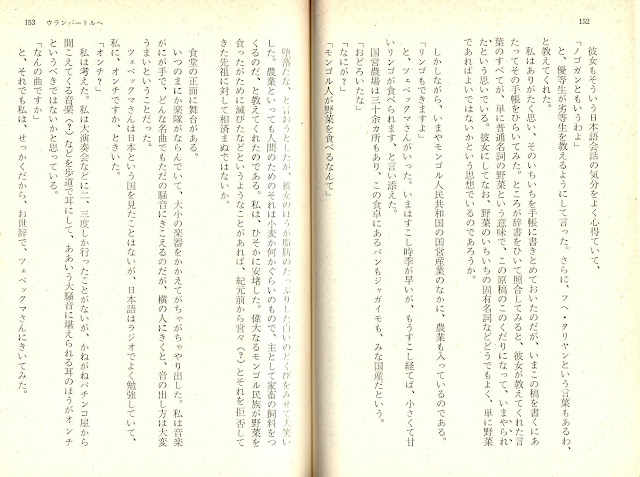 152
彼女もそういう日本語会話の気分をよく心得ていて、
「ノゴガンともいうわよ」
と、優等生が劣等生を教えるようにして言った。さらに、フヘ・タリヤンという言葉もあるわ、
と教えてくれた。
私はありがたく思い、そのいちいちを手帳に書きとめておいたのだが、いまこの稿を書くにあ
たってその手帳をひらいてみた。ところが辞書をひいて照合してみると、彼女が教えてくれた言
葉のすべてが、単に普通名詞の野菜という意味で、この原稿のこのくだりになって、いまやられ
たという思いでいる。彼女にしてなお、野菜のいちいちの固有名詞などどうでもよく、単に野菜
であればよいではないかという思想でいるのであろうか。
しかしながら、いまやモンゴル人民共和国の国営産業のなかに、農業も入っているのである。
「リンゴもできますよ」
と、ツェベックマさんがいった。いまはすこし時季が早いが、もうすこし経てば、小さくて甘
いリンゴが食べられます、と言い添えた。
国営農場は三十余カ所もあり、この食卓にあるパンもジャガイモも、みな国産だという。
「おどろいたな」
「なにが？」
「モンゴル人が野菜を食べるなんて」
153 ウランバートルへ
堕落だな、と言おうとしたが、彼女のほうが脂肪のたっぷりした白いのどくびをみせて大笑い
した。農業といっても人間のためのそれは小麦か何かぐらいのもので、主として家畜の飼料をつ
くるのだ、と教えてくれたのである。私は、ひそかに安堵した。偉大なるモンゴル民族が野菜を
食ったがために滅びたなどというようなことがあれば、紀元前から営々（？）とそれを拒否して
きた先祖に対して相済まぬではないか。
食堂の正面に舞台がある。
いつのまにか楽隊がならんでいて、大小の楽器をかかえてがちゃがちゃやり出した。私は音楽
がにが手で、どんな名曲でもただの騒音にきこえるのだが、横の人にきくと、音の出し方は大変
うまいということだった。
ツェベックマさんは日本という国を見たことはないが、日本語はラジオでよく勉強していて、
私に、オンチですか、ときいた。
「オンチ？」
私は考えた。私は大演奏会などに二、三度しか行ったことがないが、かねがねパチンコ屋から
聞こえてくる音楽（？）などを歩道で耳にして、ああいう大騒音に堪えられる耳のほうがオンチ
というべきではないかと思っている。
「なんの曲ですか」
と、それでも私は、せっかくだから、お世辞で、ツェベックマさんにきいてみた。